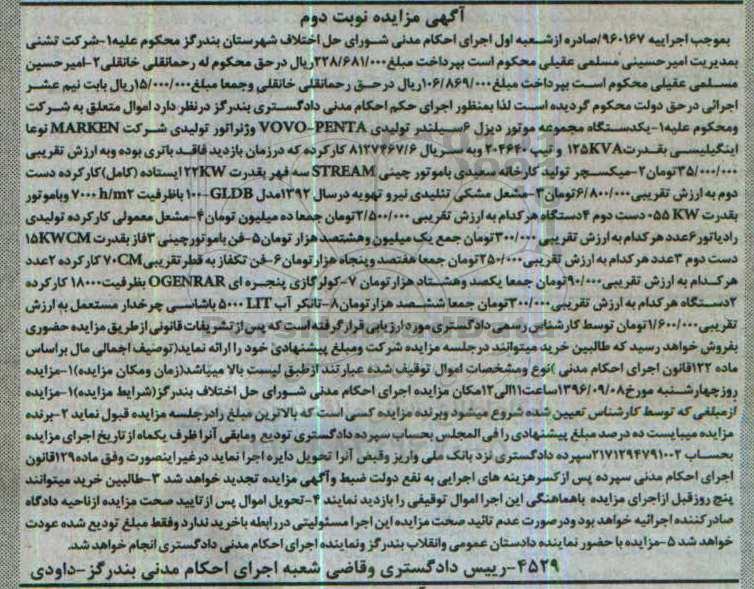 آگهی مزایده نوبت دوم
بموجب اجراییه ۹۶۰۱۶۷/صادره ازشعبه اول اجرای احکام مدنی شورای حل اختلاف شهرستان بندرگز محکوم علیه۱-شرکت تشنی
بمدیریت امیرحسینی مسلمی عقیلی محکوم است بپرداخت مبلغ۲۲۸/۶۸۱/۰۰۰ریال درحق محکوم له رحمانقلی خانقلی۲-امیرحسین
مسلمی عقیلی محکوم است بپرداخت مبلغ۱۰۶/۸۶۹/۰۰۰ریال درحق رحمانقلی خانقلی وجمعا مبلغ۱۵/۰۰۰/۰۰۰ریال بابت نیم عشر
اجرائی درحق دولت محکوم گردیده است لذا بمنظور اجرای حکم احکام مدنی دادگستری بندرگز درنظر دارد اموال متعلق به شرکت
ومحکوم علیه۱-یکدستگاه مجموعه موتور دیزل ۶سیلندر تولیدی VOVO-PENTA وژنراتور تولیدی شرکت MARKEN نوعا
اینگیلیسی بقدرت۱۲۵KVA و تیپ ۲۰۴۶۴۰ وبه سریال ۸۱۲۷۴۶۷/۶ کارکرده که درزمان بازدید فاقد باتری بوده وبه ارزش تقریبی
۳۵/۰۰۰/۰۰۰تومان۲-میکسچر تولید کارخانه سعیدی باموتور چینی STREAM سه قهر بقدرت۲۲KW ایستاده (کامل)کارکرده دست
دوم به ارزش تقریبی۶/۸۰۰/۰۰۰تومان۳-مشعل مشکی تئلیدی نیرو تهویه درسال ۱۳۹۲مدل GLDB-۱۰۰۰ باظرفیت ۷۰۰۰ h/m2 وباموتور
بقدرت ۰۵۵ KW دست دوم ۴دستگاه هرکدام به ارزش تقریبی ۲/۵۰۰/۰۰۰تومان جمعا ده میلیون تومان۴-مشعل معمولی کارکرده تولیدی
رادیاتور۶عدد هرکدام به ارزش تقریبی۳۰۰/۰۰۰تومان جمع یک میلیون وهشتصدهزار تومان۵-فن باموتورچینی ۳فاز بقدرت ۱۵KWCM
دست دوم ۳عدد هرکدام به ارزش تقریبی۲۵۰/۰۰۰تومان جمعا هفتصد وپنجاه هزارتومان۶-فن تکفاز به قطر تقریبی۷۰CM کارکرده ۲عدد
هرکدام به ارزش تقریبی۹۰/۰۰۰تومان جمعا یکصد وهشتاد هزارتومان ۷-کولرگازی پنجره ای OGENRAR بظرفیت۱۸۰۰۰ کارکرده
۲دستگاه هرکدام به ارزش تقریبی۳۰۰/۰۰۰تومان جمعا ششصد هزارتومان۸-تانکر آب ۵۰۰۰ LIT باشاسی چرخدار مستعمل به ارزش
تقریبی۱/۶۰۰/۰۰۰تومان توسط کارشناس رسمی دادگستری مورد ارزیابی قرار گرفته است که پس از تشریفات قانونی ازطریق مزایده حضوری
بفروش خواهد رسید که طالبین خرید میتوانند درجلسه مزایده شرکت ومبلغ پیشنهادی خود را ارائه نماید(توصیف اجمالی مال براساس
ماده ۱۲۲قانون اجرای احکام مدنی )نوع ومشخصات اموال توقیف شده عبارتند ازطبق لیست بالا میباشد(زمان ومکان مزایده)۱-مزایده
روزچهارشنبه مورخ۱۳۹۶/۰۹/۰۸ساعت۱۱الی۱۲مکان مزایده اجرای احکام مدنی شورای حل اختلاف بندرگز(شرایط مزایده)۱-مزایده
ازمبلغی که توسط کارشناس تعیین شده شروع میشود وبرنده مزایده کسی است که بالاترین مبلغ رادرجلسه مزایده قبول نماید ۲-برنده
مزایده میبایست ده درصد مبلغ پیشنهادی را فی المجلس بحساب سپرده دادگستری تودیع ومابقی آنرا ظرف یکماه از تاریخ اجرای مزایده
بحساب ۲۱۷۱۲۹۴۷۹۱۰۰۲سپرده دادگستری نزد بانک ملی واریز وقبض آنرا تحویل دایره اجرا نماید درغیراینصورت وفق ماده۱۲۹قانون
اجرای احکام مدنی سپرده پس ازکسرهزینه های اجرایی به نفع دولت ضبط وآگهی مزایده تجدید خواهد شد ۳-طالبین خرید میتوانند
پنج روزقبل ازاجرای مزایده باهماهنگی این اجرا اموال توقیفی را بازدید نمایند ۴-تحویل اموال پس از تایید صحت مزایده ازناحیه دادگاه
صادرکننده اجرائیه خواهد بود ودرصورت عدم تائید صحت مزایده این اجرا مسئولیتی دررابطه باخرید ندارد وفقط مبلغ تودیع شده عودت
خواهد شد ۵-مزایده با حضور نماینده دادستان عمومی وانقلاب بندرگز ونماینده اجرای احکام مدنی دادگستری انجام خواهد شد.
۴۵۲۹-رییس دادگستری وقاضی شعبه اجرای احکام مدنی بندرگز-داودی